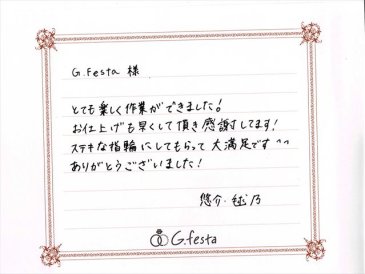 G.festa 様
とても楽しく作業ができました!
お仕上げも早くして頂き感謝してます!
ステキな指輪にしてもらって大満足です^^
ありがとうございました!
悠介・乃
G.festa